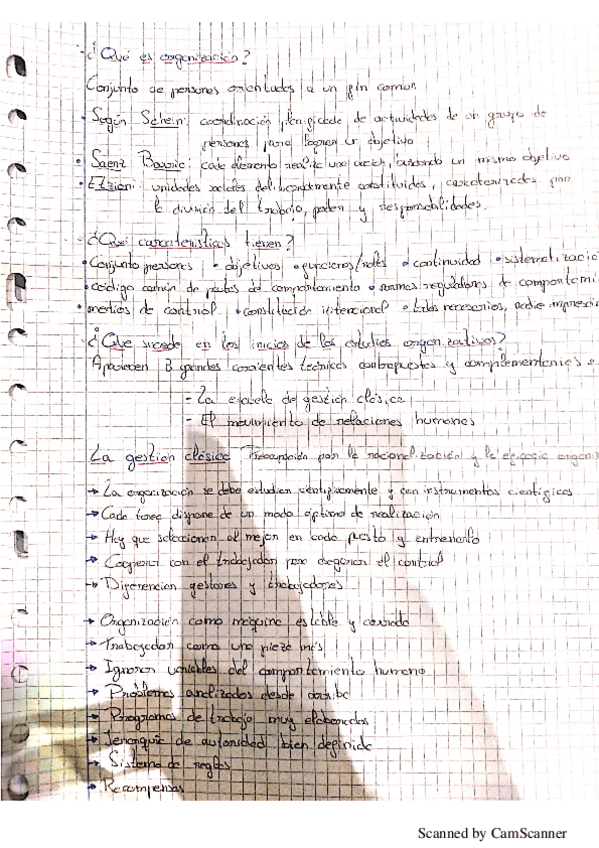 ¿Qué es organización?
Conjunto de personas orientadas a un fin común
• Según Schein: coordinación planificada de actividades de un grupo de
personas para lograr un objetivo
• Saenz Barrio: cada elemento realiza una acción, buscando un mismo objetivo
• Etzioni: unidades sociales deliberadamente constituidas, caracterizadas por
la división del trabajo, poder y responsabilidades.
¿Qué características tienen?
• Conjunto personas • objetivos • funciones/roles • continuidad • sistematizacio
• código común de pautas de comportamiento • normas reguladoras de comportami
• medios de control • constitución intencional • todos necesarios, nadie impresci
¿Que sucede en los inicios de los estudios organizativos?
Aparecen 2 grandes corrientes contrapuestas y complementarias
- La escuela de gestión clásica
- El movimiento de relaciones humanas
La gestión clásica Preocupación por la racionalización y la eficacia organi
→ La organización se debe estudiar científicamente y con instrumentos científicos
→ Cada tarea dispone de un modo óptimo de realización
→ Hay que seleccionar al mejor en cada puesto y entrenarlo
→ Cooperar con el trabajador para asegurar el control
→ Diferenciar gestores y trabajadores
→ Organización como máquina estable y cerrada
→ Trabajador como una pieza más
→ Ignoran variables del comportamiento humano
→ Problemas analizados desde arriba
→ Programas de trabajo muy elaborados
→ Jerarquía de autoridad bien definida
→ Sistema de reglas
→ Recompensas
Scanned by CamScanner